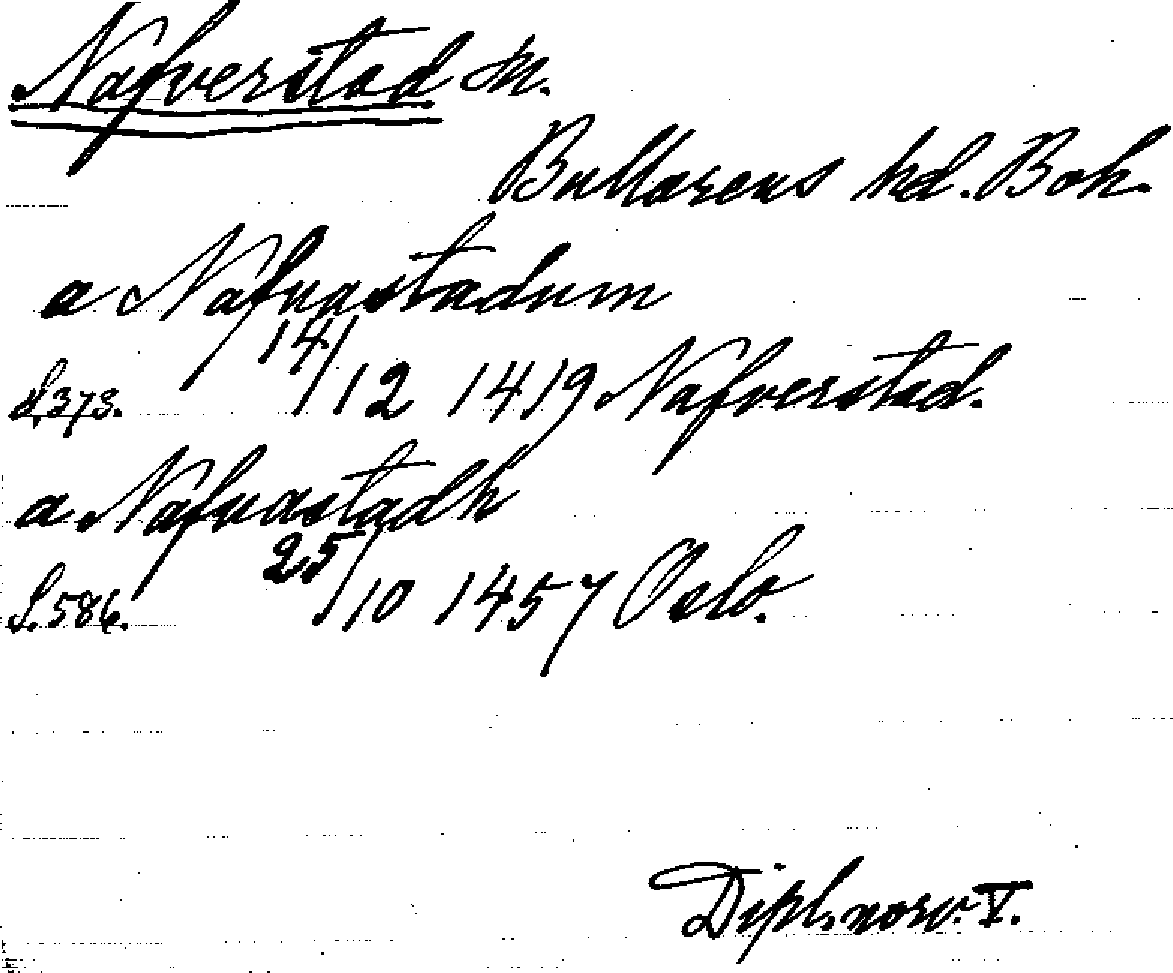 Nafverstad sn.
Bullarens hd. Boh.
a Nafuastadum
S. 373. 14/12 1419 Nafverstad.
a Nafuastadh
S. 586. 25/10 1457 Oslo.
Dipl. norv. V.